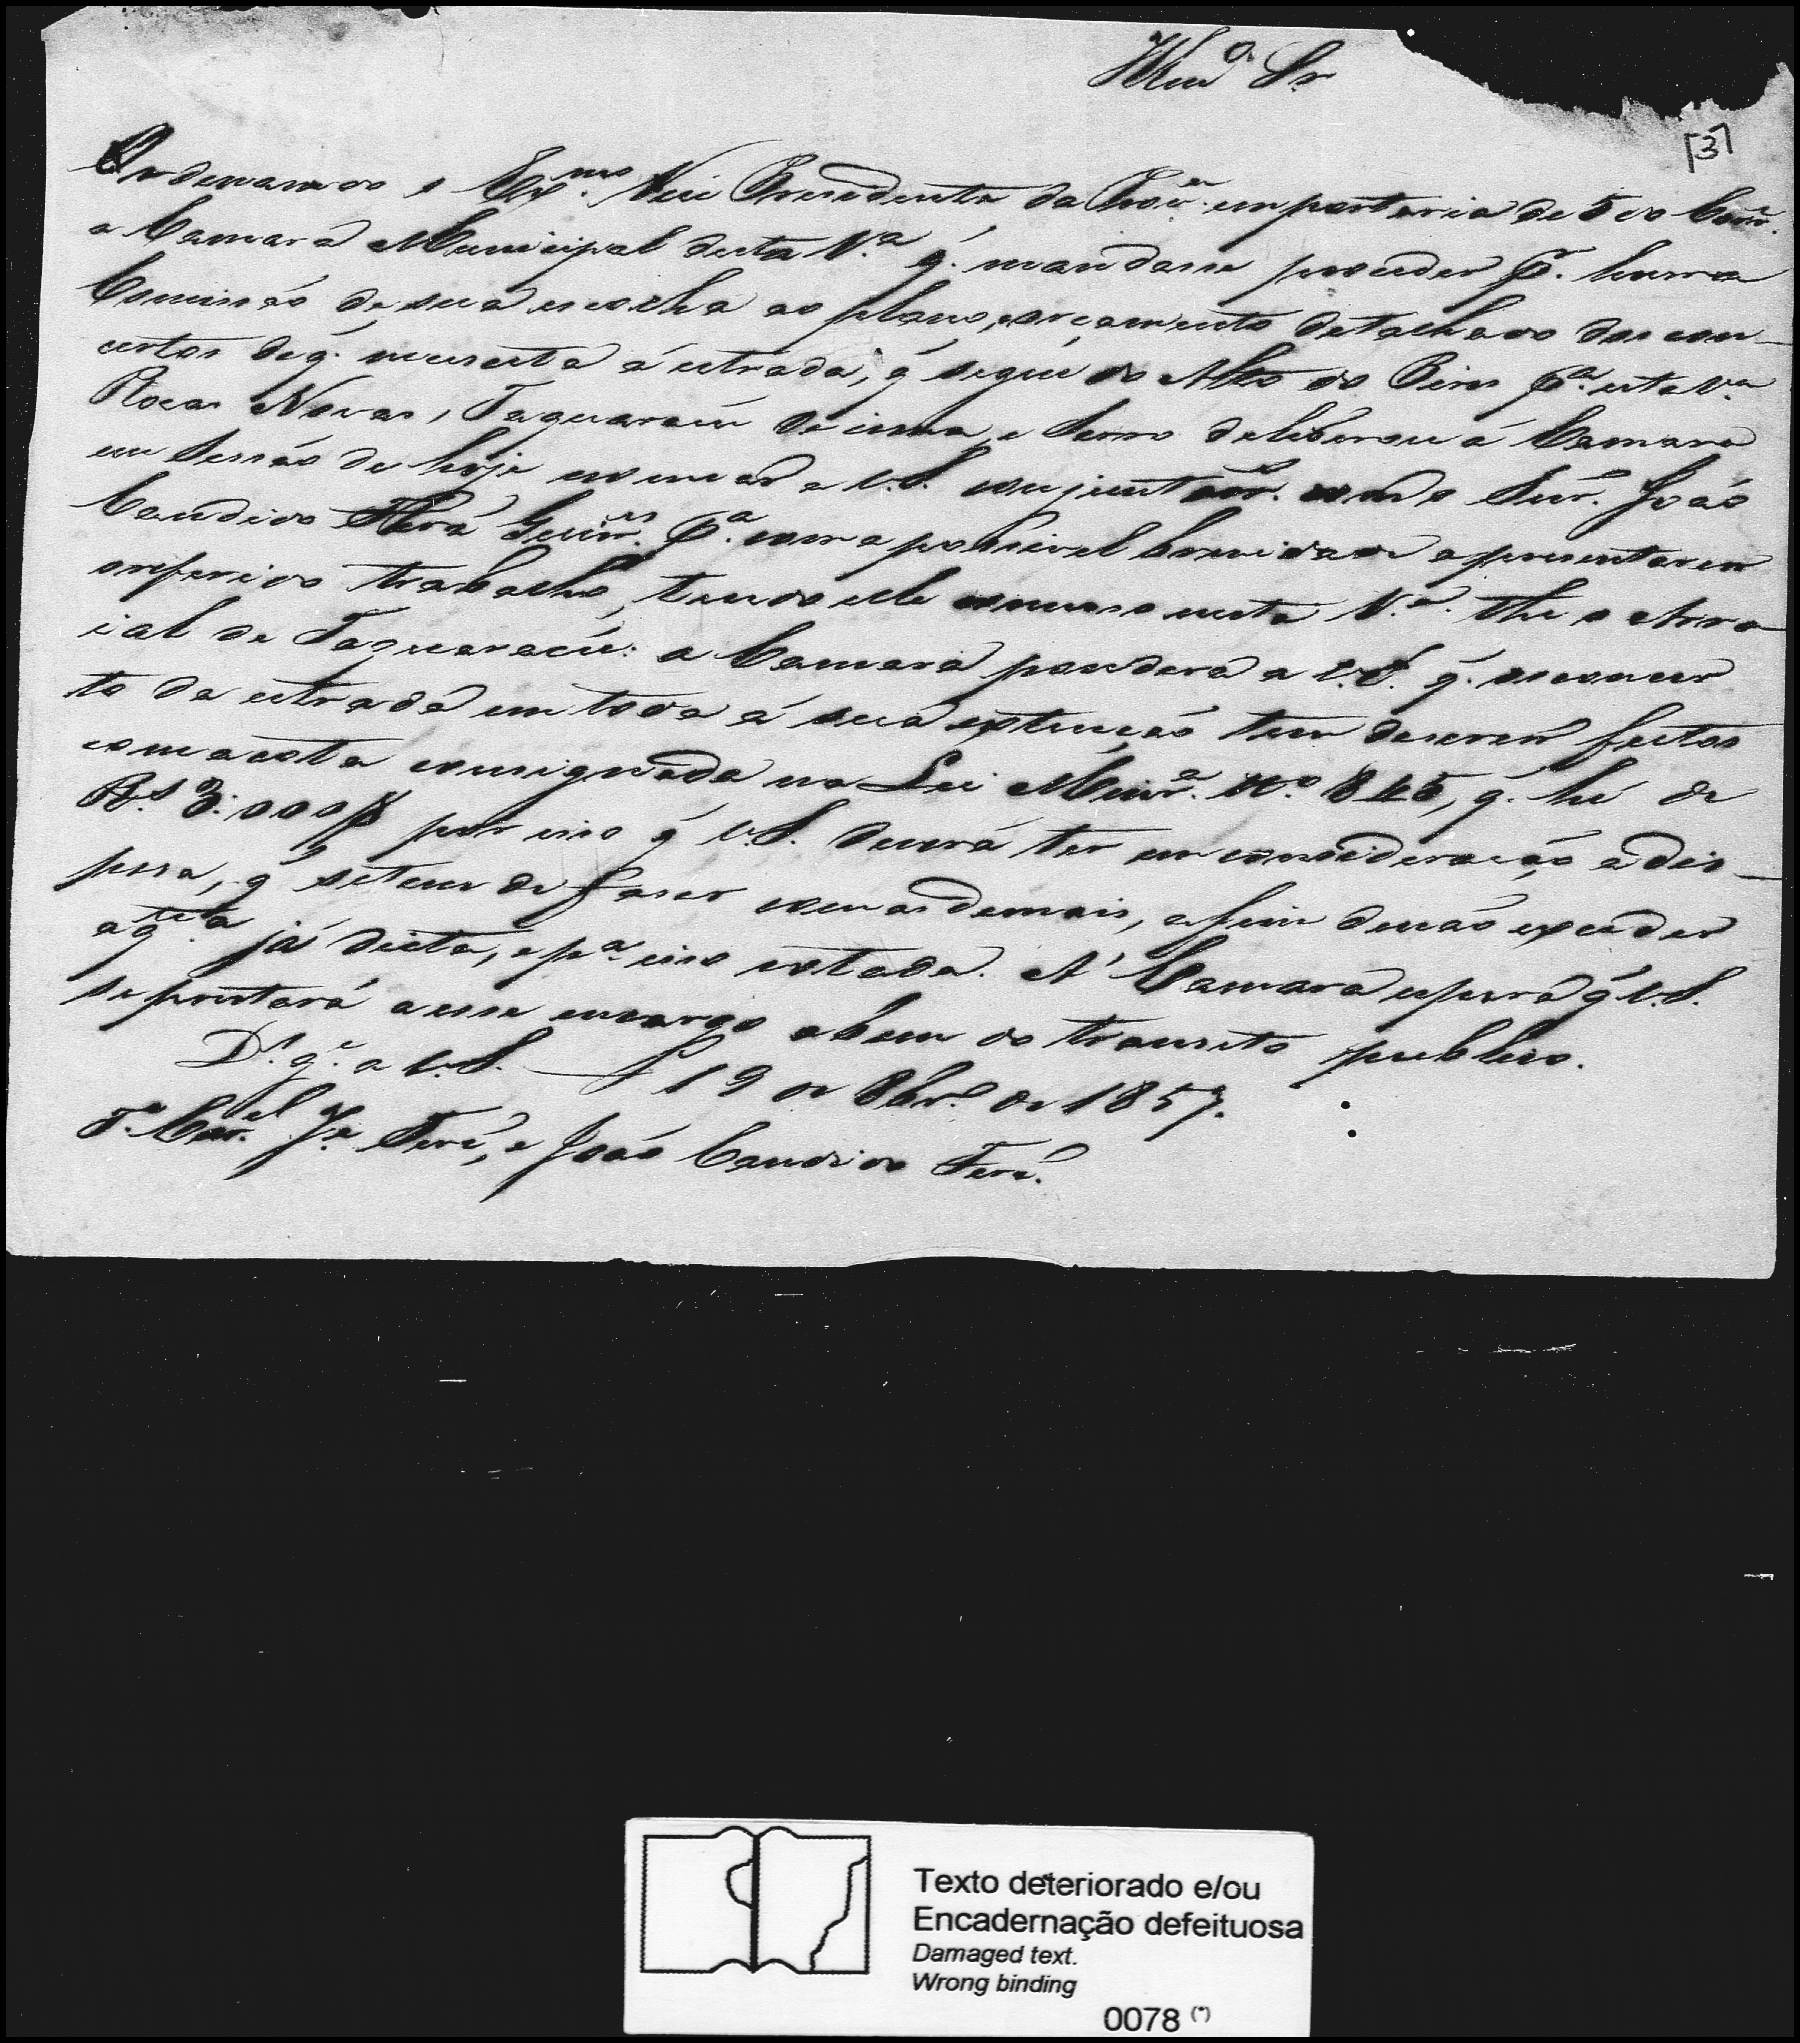 Illmº. Sr.
[3]
Ordenando o Exmº. Vice Presidente da Provª. em portaria de 5 do Corrᵉ.
a Camará Municipal desta Vª. q̃. mandasse proceder pʳ. huma
Comissão de sua escolha ao plano, e orçamento detalhado dos con-
certos de q̃. necessita a estrada, q̃ segue do Alto do Pires pª. esta Vª.
Roças Novas, Taquarassú de sima, e Serro deliberou á Camara
em Sessão de hoje nomear a V.S. conjuntamᵉ. com o Snr. João
Candido Ferª pª. com a possivel brevidade apresentarem
o referido trabalho, tendo elle começo nesta Vª. the o Arra
ial de Taquaraçú: a Camará pondera a V.S. q̃. os concer
to da estrada em toda á sua extenção tem de serem feitos
com a cota consignada na Lei Minrª. Nº. 845, q̃. hé de
Rˢ 3:000$ por isso q̃ V.S. deverá ter em consideração a dis-
pesa, q̃ se tem de faser com as demais, a fim de não exceder
a qᵗⁱᵃ já dicta, e pª. isso cotada. A' Camará espera q̃ V.S.
se prestará a esse encargo a bem do transito publico.
Dˢ. gᵉ. a V.S. 19 de 8brº. de 1857.
Tᵉ. Corᵉˡ. Jᵉ. Ferª, e João Candido Ferª.
Texto deteriorado e/ou
Encadernação defeituosa
Damaged text.
Wrong binding
0078 (*)